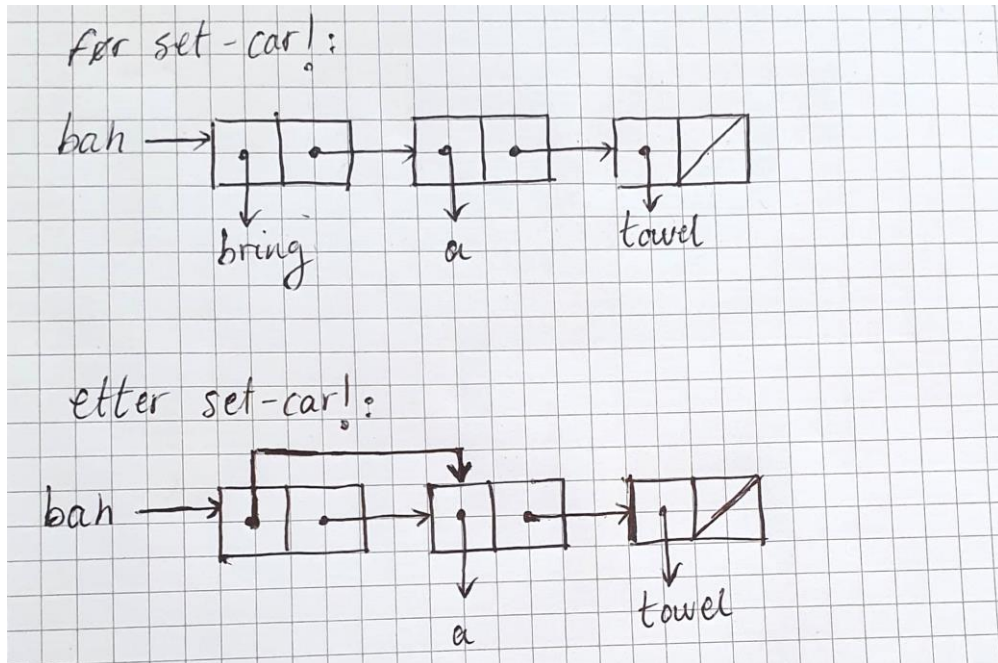 før set-car!:
bah
bring a towel
etter set-car!:
bah
a towel